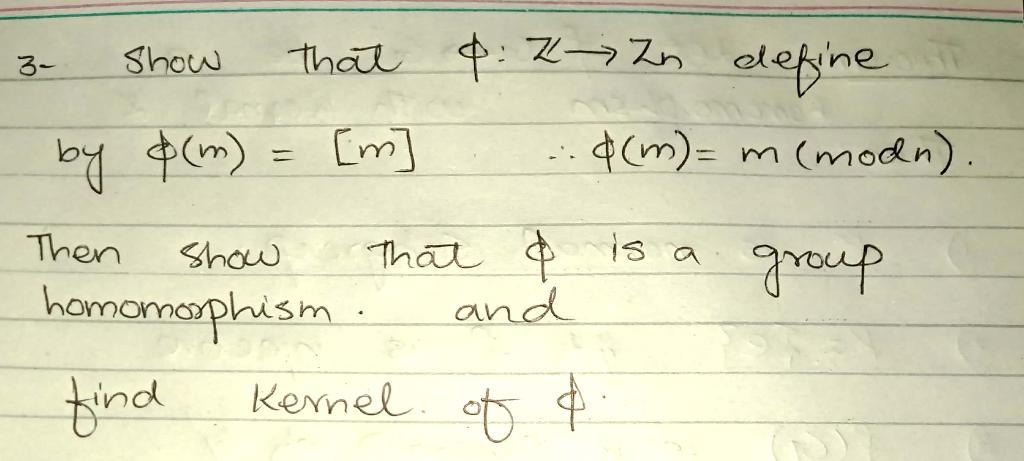 3- Show that ϕ: Z → Zn define
by ϕ(m) = [m] ∴ ϕ(m) = m (mod n).
Then show that ϕ is a group
homomorphism. and
find Kernel. of ϕ.